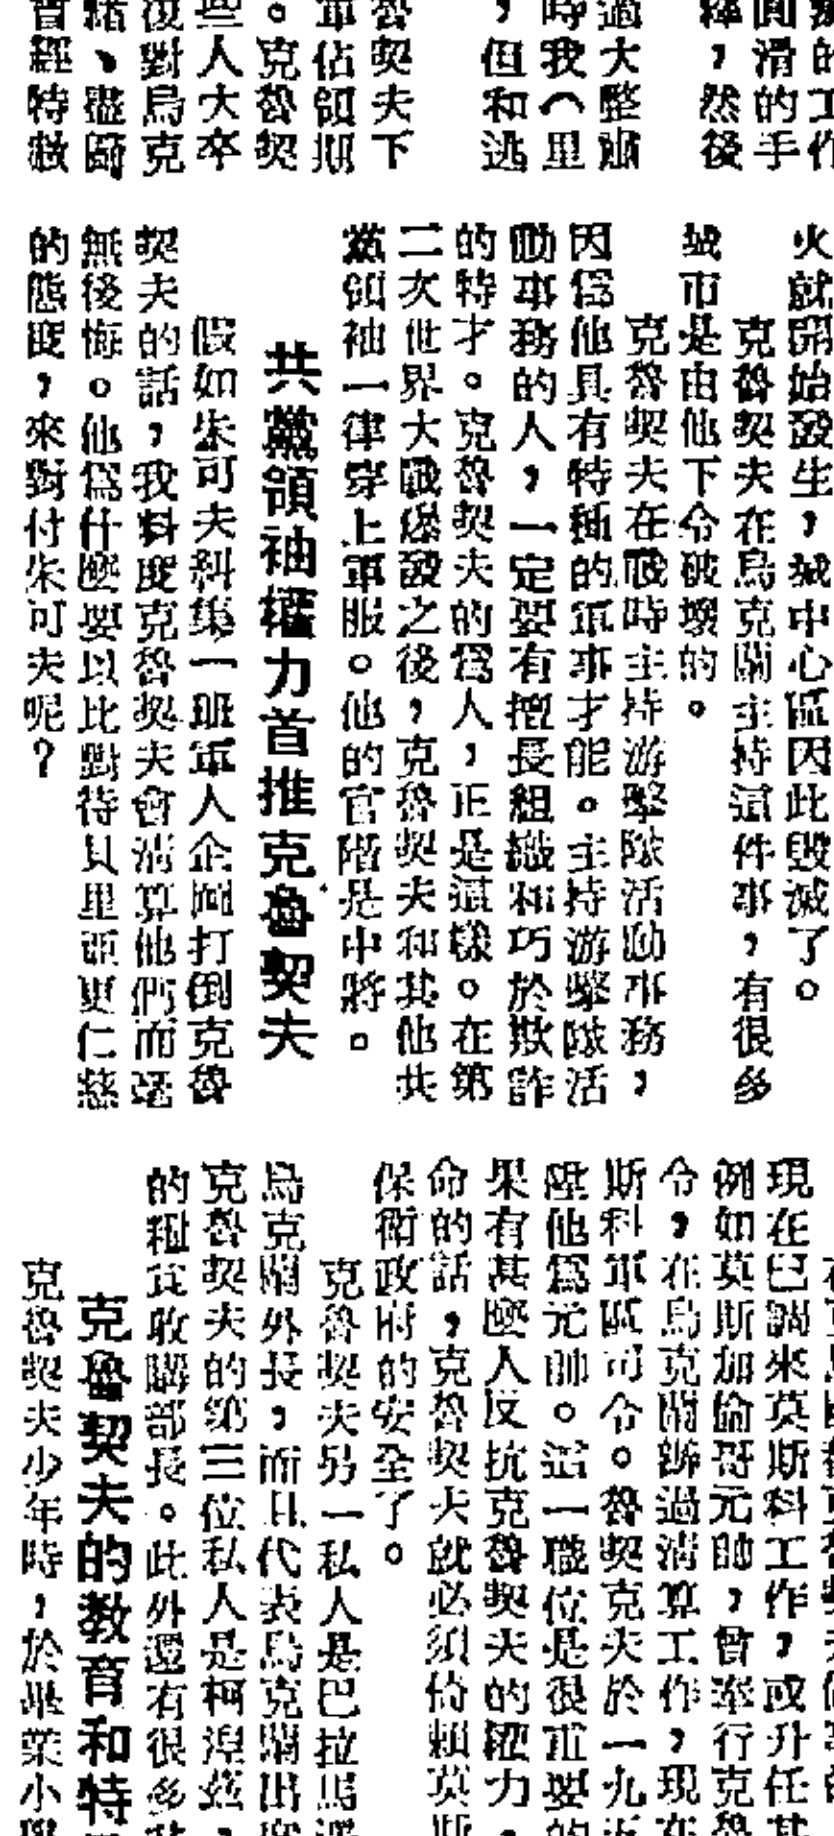 的工作
圓滑的手
，然後
過大整肅
時我（里
，但和逃
魯契夫下
軍佔領期
。克魯契
些人大卒
沒對烏克
緒、盡
曾經特赦
火就開始發生，城中心區因此毀滅了。
克魯契夫在烏克蘭主持這件事，有很多
城市是由他下令破壞的。
克魯契夫在戰時主持游擊隊活動事務，
因爲他具有特種的軍事才能。主持游擊隊活
動事務的人，一定要有擅長組織和巧於欺詐
的特才。克魯契夫的爲人，正是這樣。在第
二次世界大戰爆發之後，克魯契夫和其他共
黨領袖一律穿上軍服。他的官階是中將。
共黨領袖權力首推克魯契夫
假如朱可夫糾集一班軍人企圖打倒克魯
契夫的話，我料度克魯契夫會淸算他們而毫
無後悔。他爲什麼要以比對待貝里亞更仁慈
的態度，來對付朱可夫呢？
現在已調來莫斯科工作，或升任其
例如莫斯加倫哥元帥，曾奉行克魯
令，在烏克蘭辦過淸算工作，現在
斯科軍區司令。魯契克夫於一九五
陞他爲元帥。這一職位是很重要的
果有甚麼人反抗克魯契夫的權力，
命的話，克魯契夫就必須倚賴莫斯
保衛政府的安全了。
克魯契夫另一私人是巴拉馬
烏克蘭外長，而且代表烏克蘭出席
克魯契夫的第三位私人是柯湼茲，
的糧食收購部長。此外還有很多
克魯契夫的教育和特
克魯契夫少年時，於畢業小學